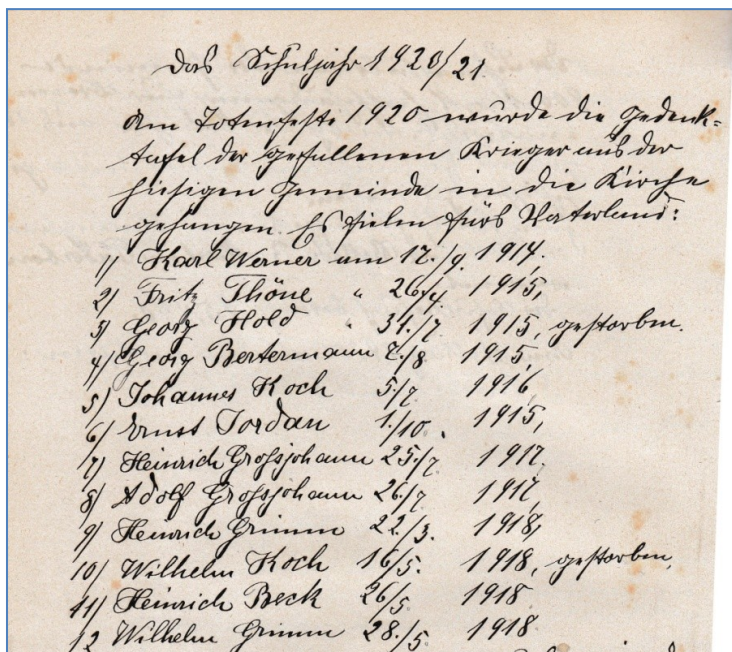 Das Schuljahr 1920/21.
Am Totenfeste 1920 wurde die Gedenk=
tafel der gefallenen Krieger aus der
hiesigen Gemeinde in die Kirche
gehangen. Es fielen fürs Vaterland:
1) Karl Werner am 17./9. 1914.
2) Fritz Thöne " 26./4 1915,
3) Georg Hold " 31./7 1915, gestorben.
4) Georg Bertermann 2./8 1915,
5) Johannes Koch 5/7 1916
6) Ernst Jordan 1./10. 1915,
7) Heinrich Grossjohann 25./7. 1917,
8) Adolf Grossjohann 26/7 1917,
9) Heinrich Grimm 22./3. 1918,
10) Wilhelm Koch 16/5. 1918, gestorben,
11) Heinrich Beck 26/5 1918.
12 Wilhelm Grimm 28./5 1918.